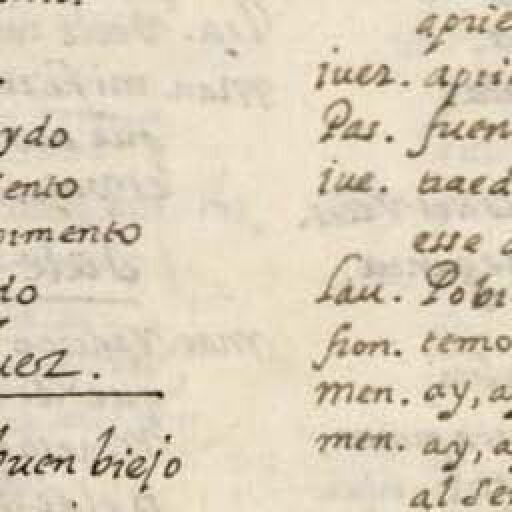 ydo
iento
imento
do
uez.
buen biejo
aprie
iuez. apri
Pas. fuen
iue. traed
esse
Lau. Pobr
fron. temo
men. ay, a
men. ay, a
al Se